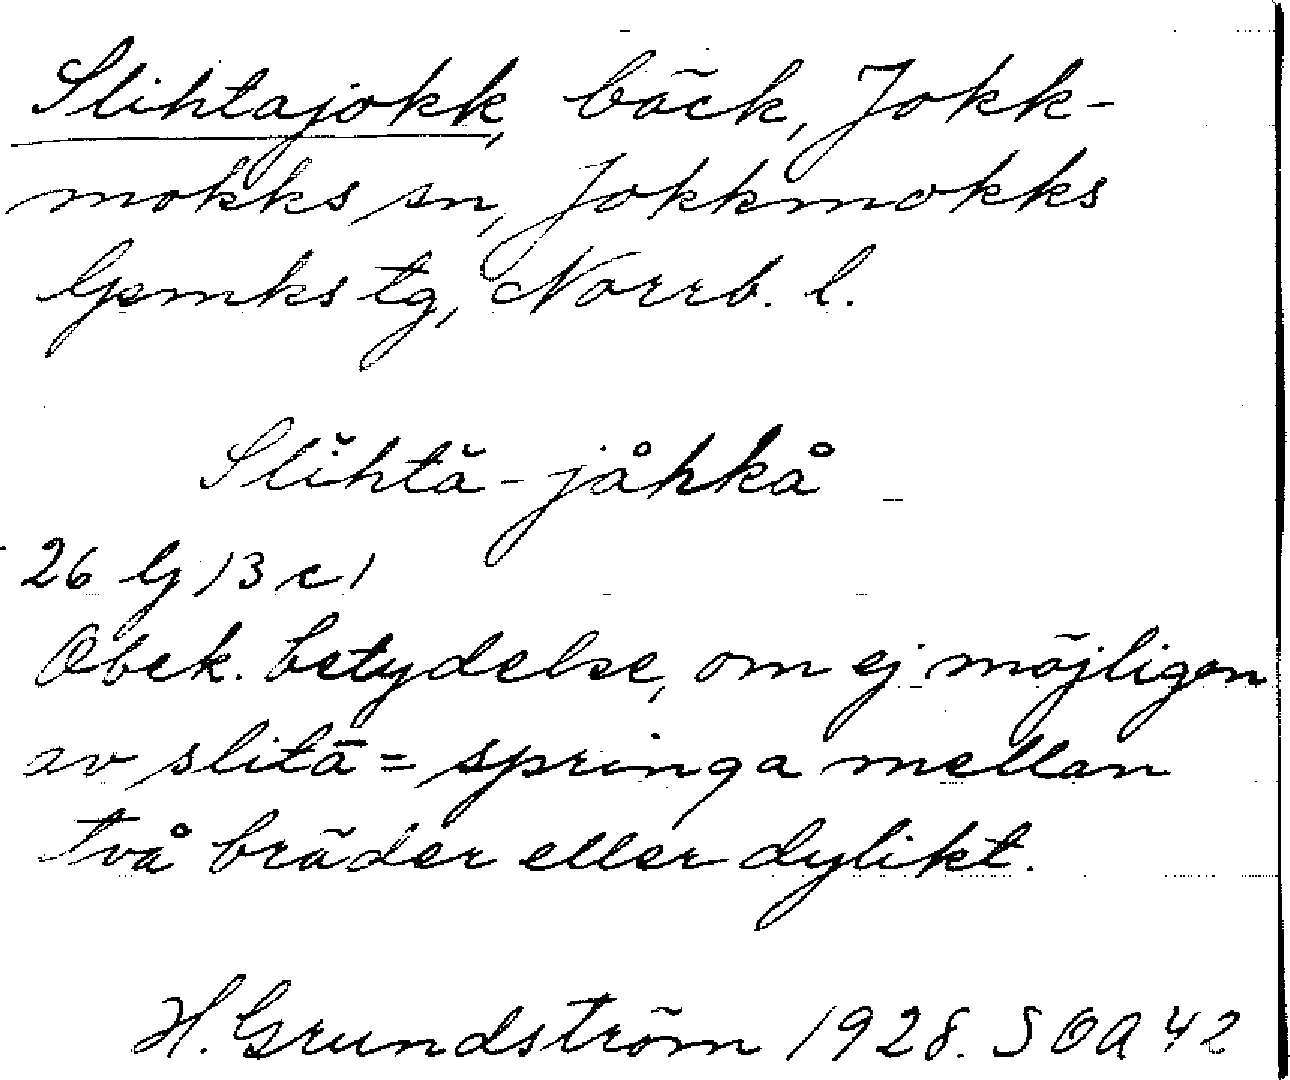 Slihtajokk, bäck, Jokk-
mokks sn, Jokkmokks
Gemks tg, Norrb. l.
Slĭhtă-jåhkå
26 G 13 c 1
Obek. betydelse, om ej möjligen
av slitā = springa mellan
två bräder eller dylikt.
H. Grundström 1928. SOA 42